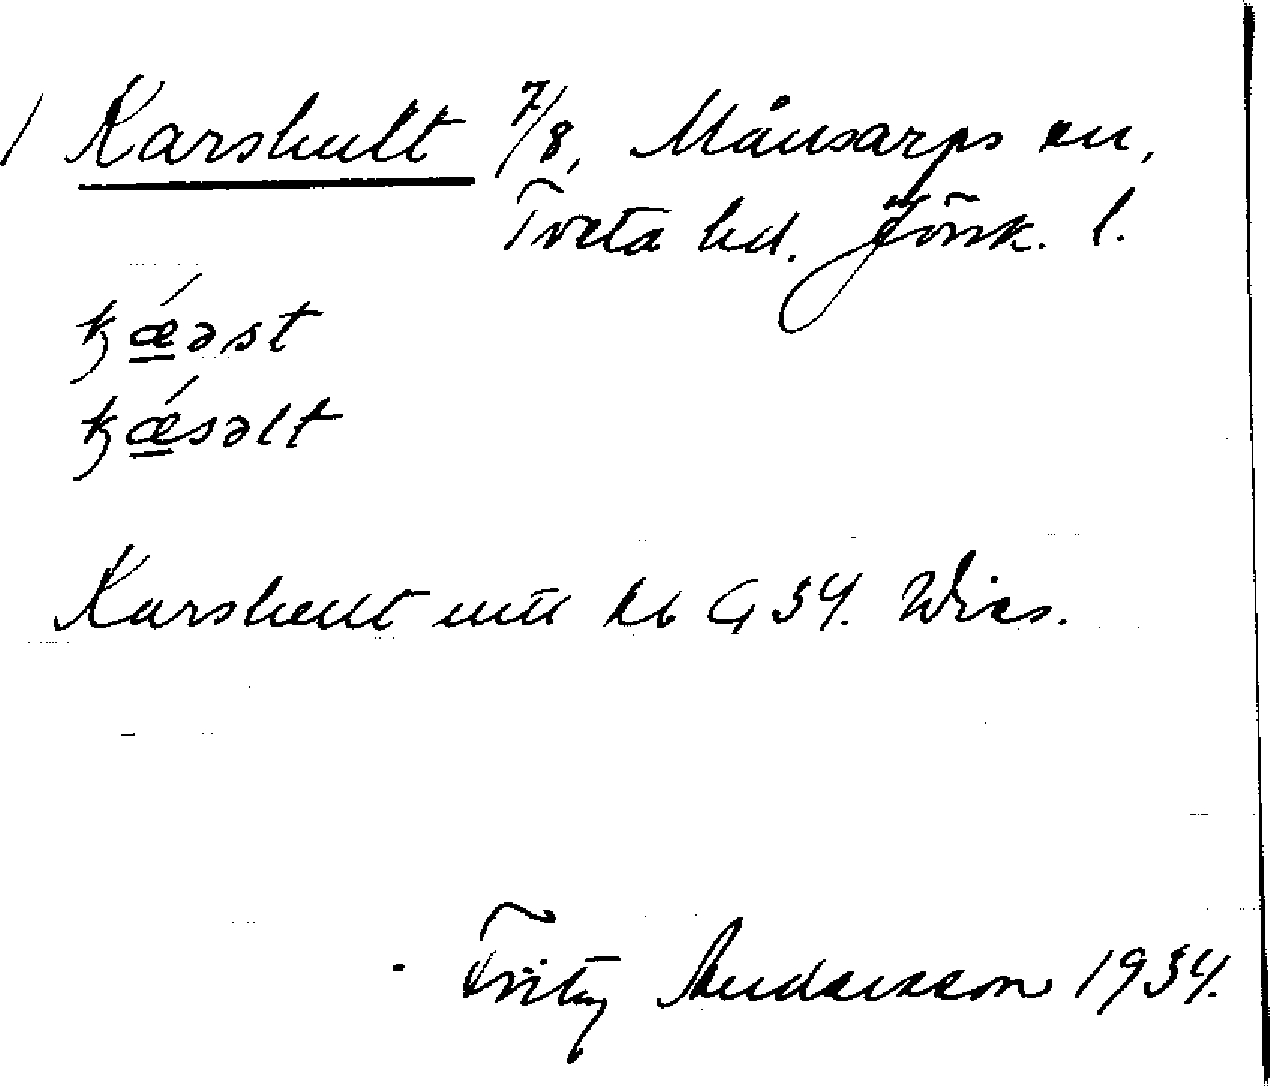 / Karshult 7/8, Månsarps sn,
Tveta hd. Jönk. l.
ꝁǽəst
ꝁǽsəlt
Karshult mtl kb G 34. Wies.
Fritz Andersson 1934.